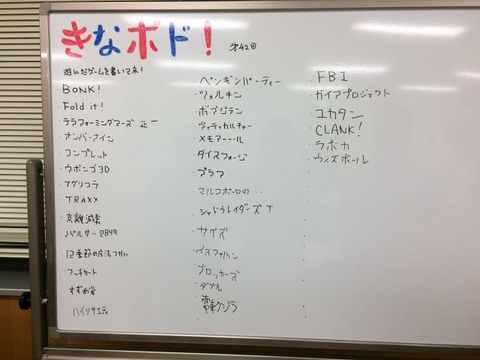 きなボド!
才42回
遊んだゲームを書いてネ!
BONK!
Fold it!
テラフォーミングマーズ 正一
ナンバーナイン
コンプレット
ウボンゴ3D
アグリコラ
TRAXX
炎魔滅素
パルサー2849
12季節の魔法つかい
すずめ雀
ハイソサエティ
ペンギンパーティー
ツォルキン
ボブジテン
ヴィティカルチャー
メモアーール
ダイスフォージ
マルコポーロの…
シャドウレイダーズ T
イスファハン
ブロッカーズ
ダブル
電車クジラ
FBI
ガイアプロジェクト
ユカタン
CLANK!
ラボカ
ウィズボール